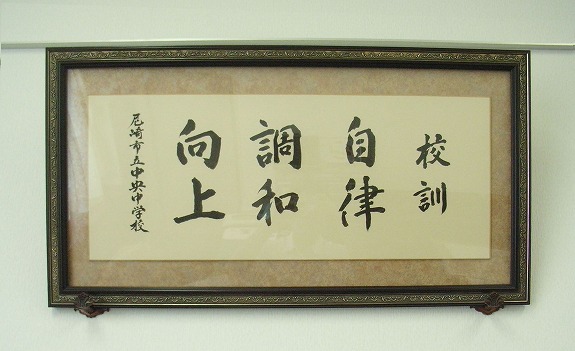 校訓
自律
調和
向上
尼崎市立中央中学校